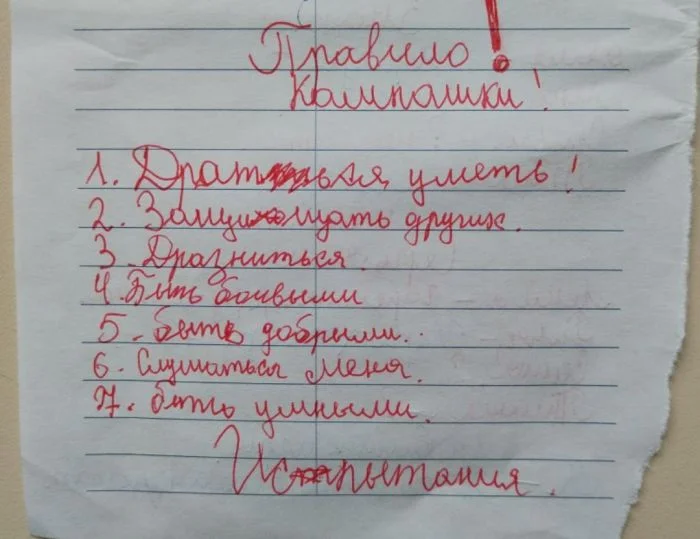 Правило!
Компашки!
1. Драться уметь!
2. Защищать других.
3. Дразниться.
4. Быть боевыми
5. быть добрыми.
6. Слушаться меня.
7. быть умными.
Испытания.